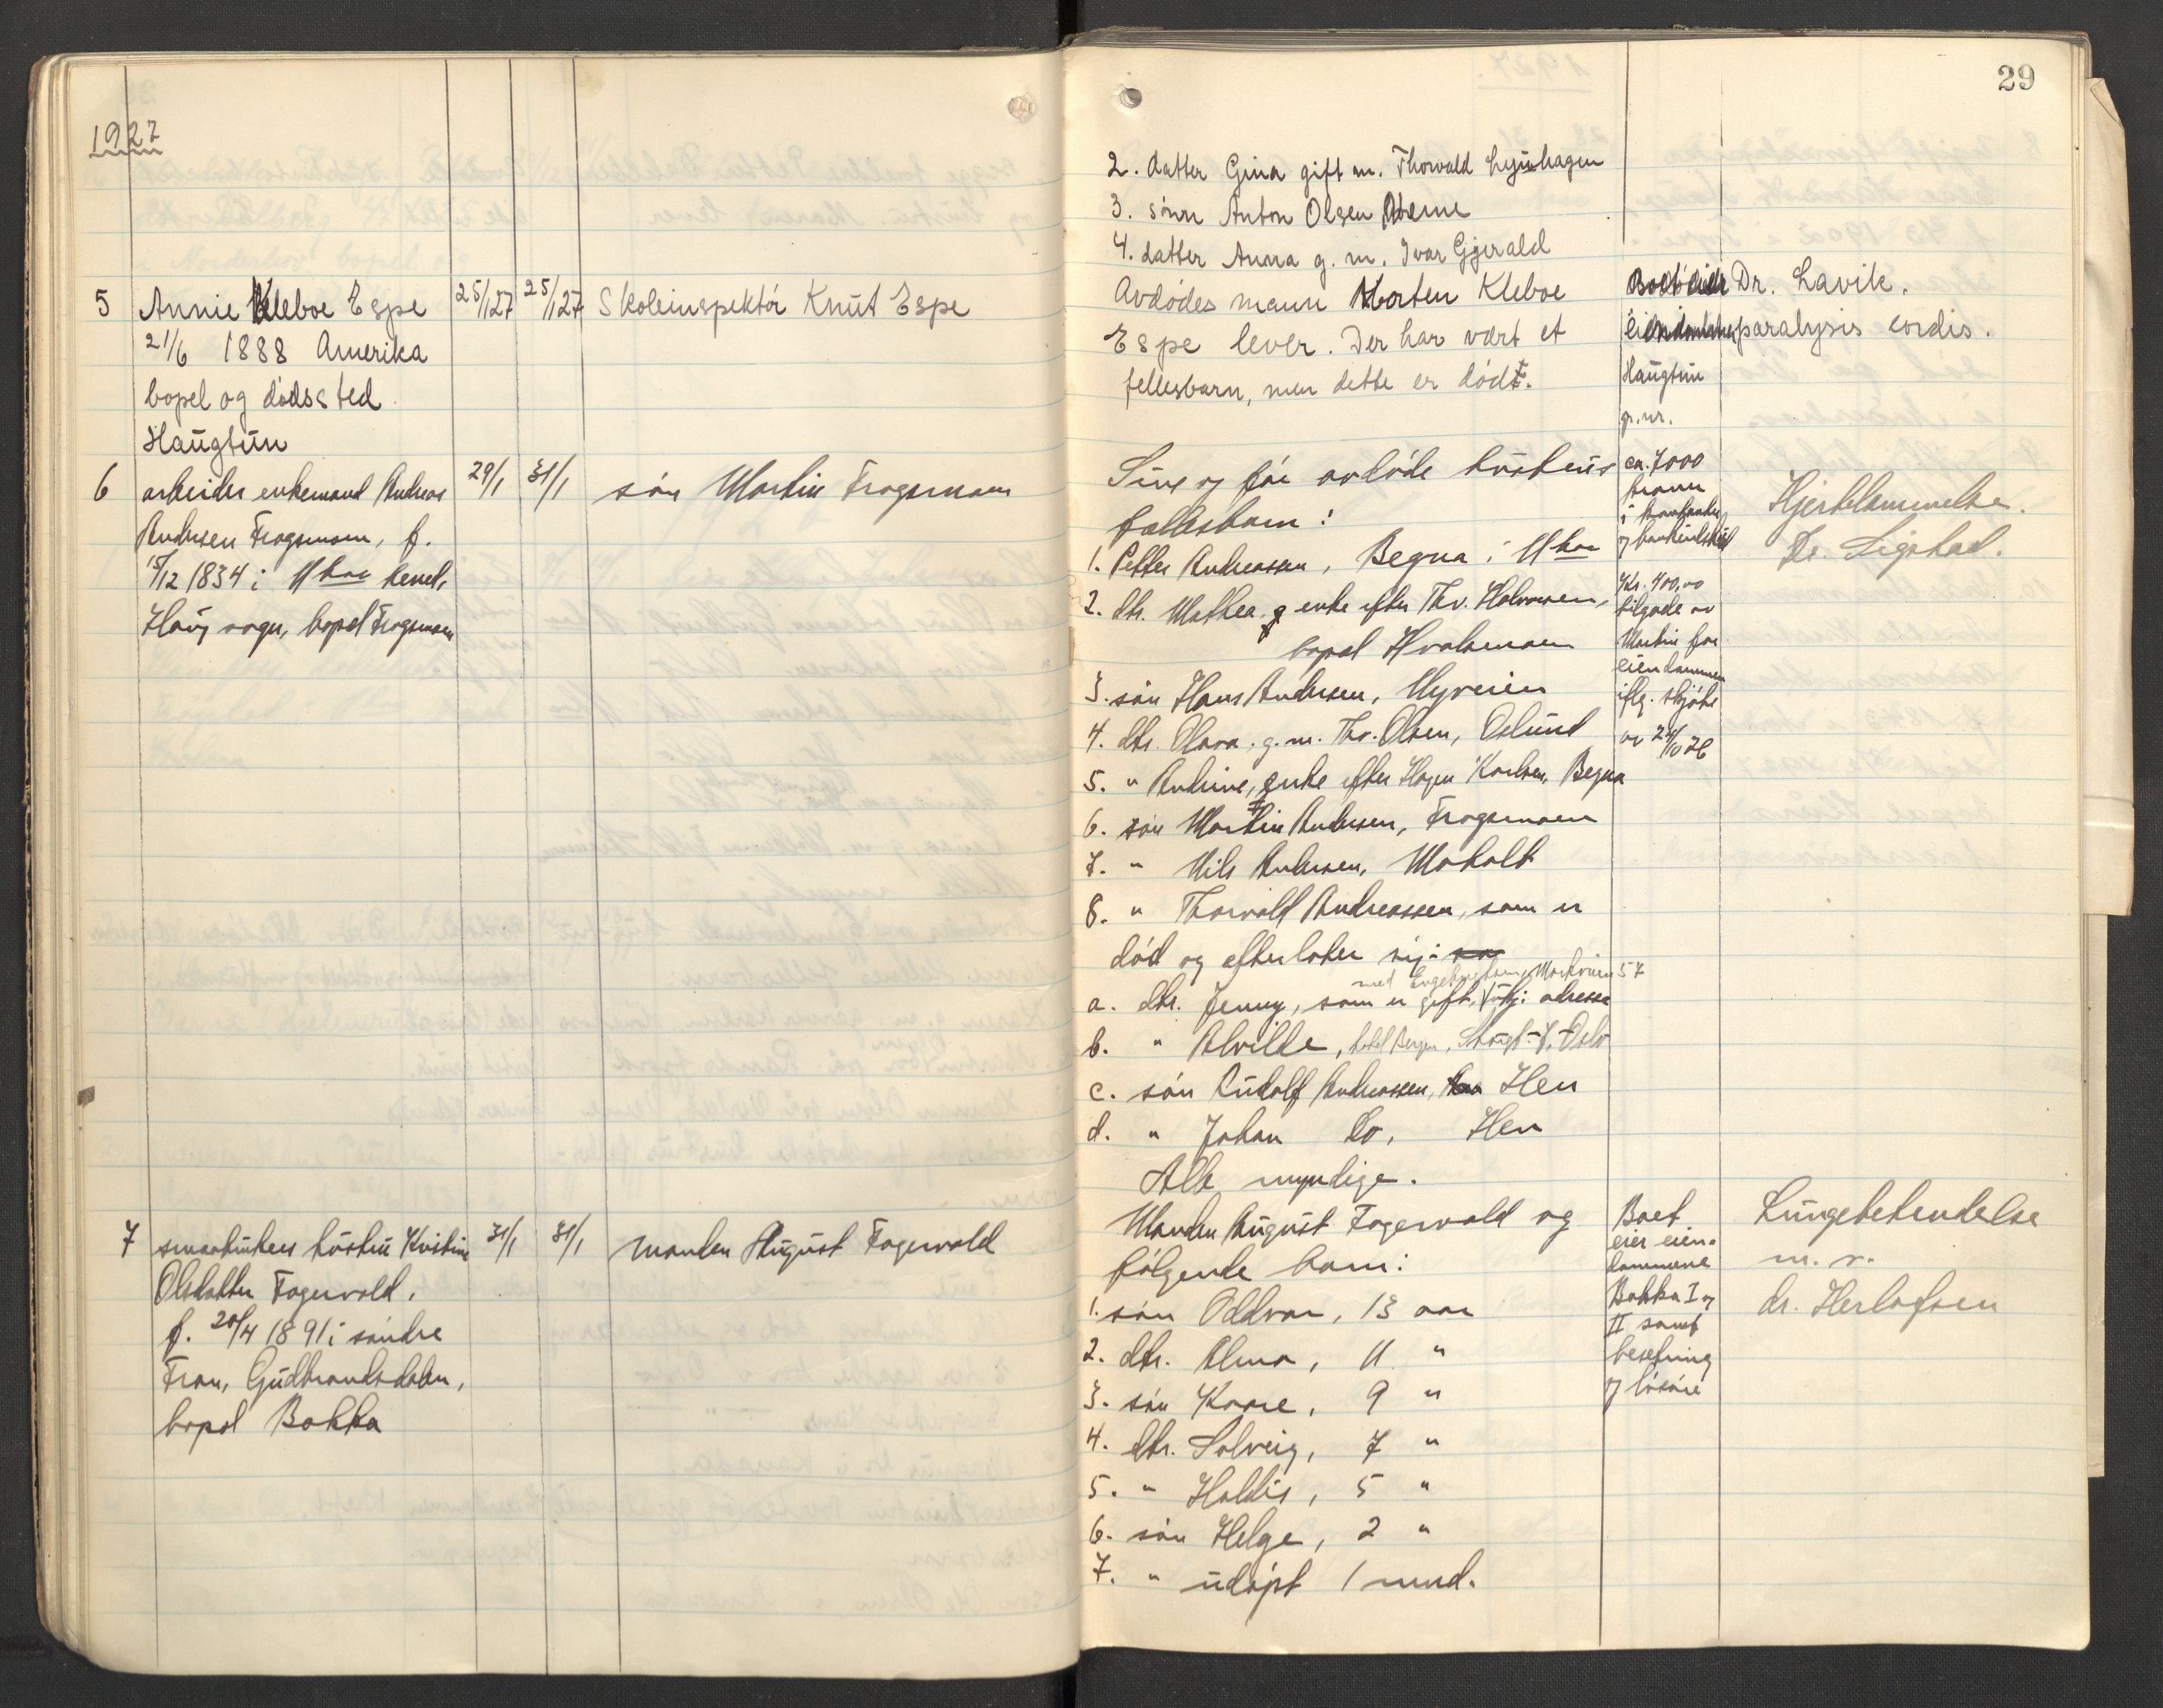 1927
5
Annie Kleboe Espe
21/6 1888 Amerika
bopel og dødssted
Haugtun
25/1 27
25/1 27
Skoleinspektør Knut Espe
6
arbeider enkemand Andreas
Andersen Frogsmoen, f.
15/12 1834 i
Haug sogn, bopel Frogsmoen
29/1
31/1
søn Martin Frogsmoen
7
smaabrukers hustru Kristine
Olsdatter Fagervold.
f. 20/4 1891 i søndre
Fron, Gudbrandsdalen,
bopel Bakka
31/1
31/1
manden August Fagervold
29
2. datter Gina gift m. Thorvald
3. sønn Anton Olsen
4. datter Anna g. m. Ivar Gjerald
Avdødes mann Morten Kleboe
Espe lever. Der har vært et
fellesbarn, men dette er dødt.
Boet eier
eiendommen
Haugtun
g.nr.
Dr. Lavik.
paralysis cordis.
Sine og før avdøde hustrus
fællesbarn:
1. Petter Andreassen, Begna i
2. dtr. Mathea enke efter Thv. Halvorsen,
bopel Hvalsmoen
3. søn Hans Andersen, Myreien
4. dtr. Olava g. m. Thv. Olsen, Oslund
5. " Andrine, enke efter Hagen Karlsen, Begna
6. søn Martin Andersen, Frogsmoen
7. " Nils Andersen, Moholt
8. " Thorvald Andreassen, som er
død og efterlater sig:
a. dtr. Jenny, som er gift, adresse
b. " Alvilde, hotel Bergen, Oslo
c. søn Rudolf Andreassen, Hen
d. " Johan do. Hen
Alle myndige.
ca. 7000
kroner
i kontanter
og bankindskud
Kr. 400,00
tilgode av
Martin for
eiendommen
iflg. skjøte
av 24/10 26
Hjertelammelse.
Dr.
Manden August Fagervold og
følgende barn:
1. søn Oddvar, 13 aar
2. dtr. Alma, 11 "
3. søn Kaare, 9 "
4. dtr. Solveig, 7 "
5. " Haldis, 5 "
6. søn Helge, 2 "
7. " udøpt 1 mnd.
Boet
eier eien-
dommene
Bakka I og
II samt
besetning
og løsøre
Lungebetendelse
m. v.
dr. Herlofsen